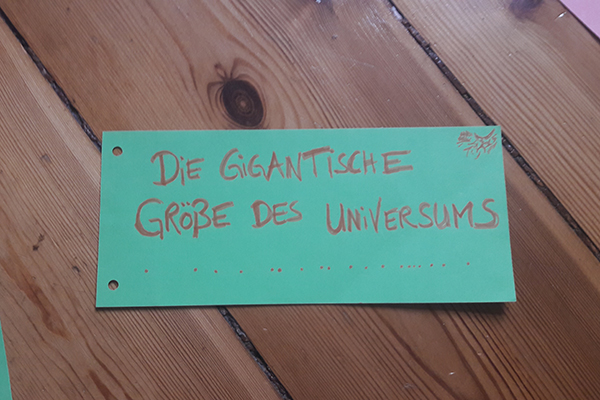 DiE GiGANTiSCHE
GRÖßE DES UNiVERSUMS